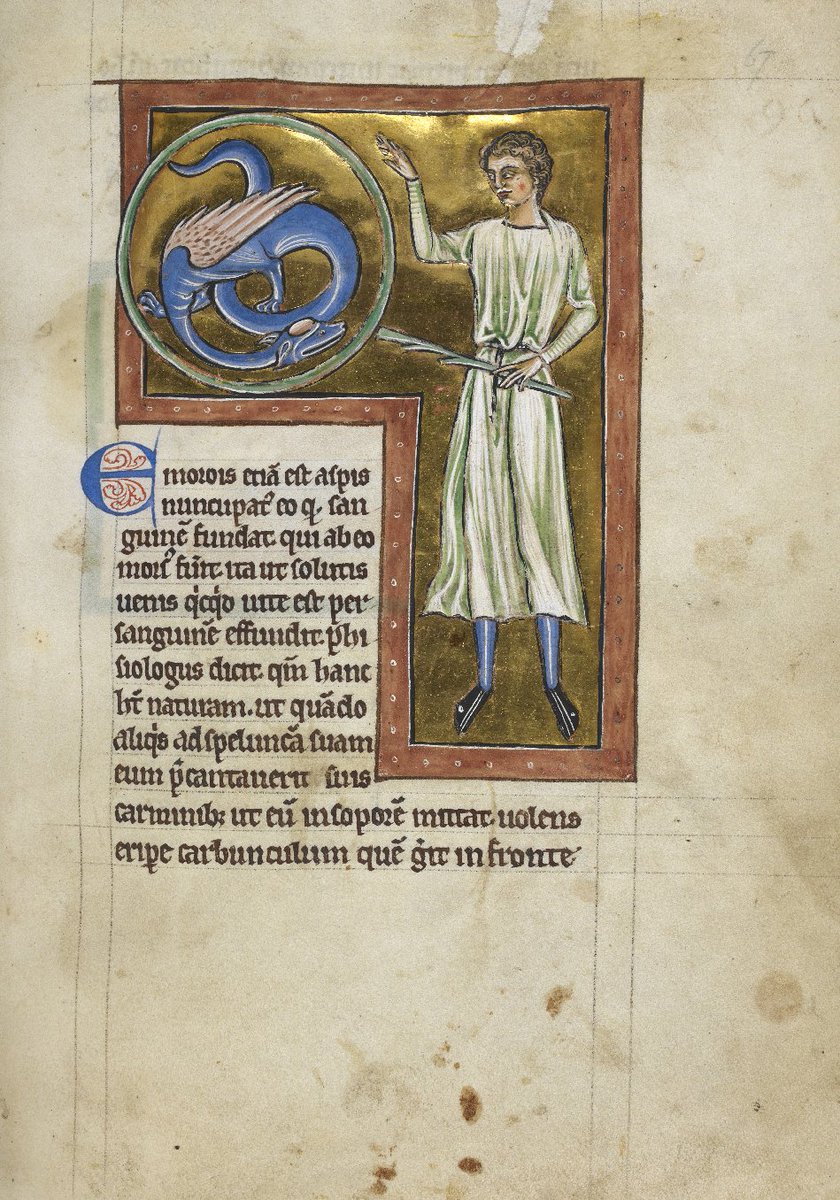 67
Emorois etiā est aspis
nuncupatᷣ eo q̨ san
guinē fundat. qui ab eo
morsᷣ fūit. ita ut solutis
uenis qͥcqͥd uite est per
sanguinē effundit. phi
siologus dicit. qm̄ hanc
ht̄ naturam. ut quādo
aliqͥs ad speluncā suam
eum p̄cantauerit suis
carminibꝫ ut eū in soporē mittat. uolens
eripe carbunculum quē gͥit in fronte